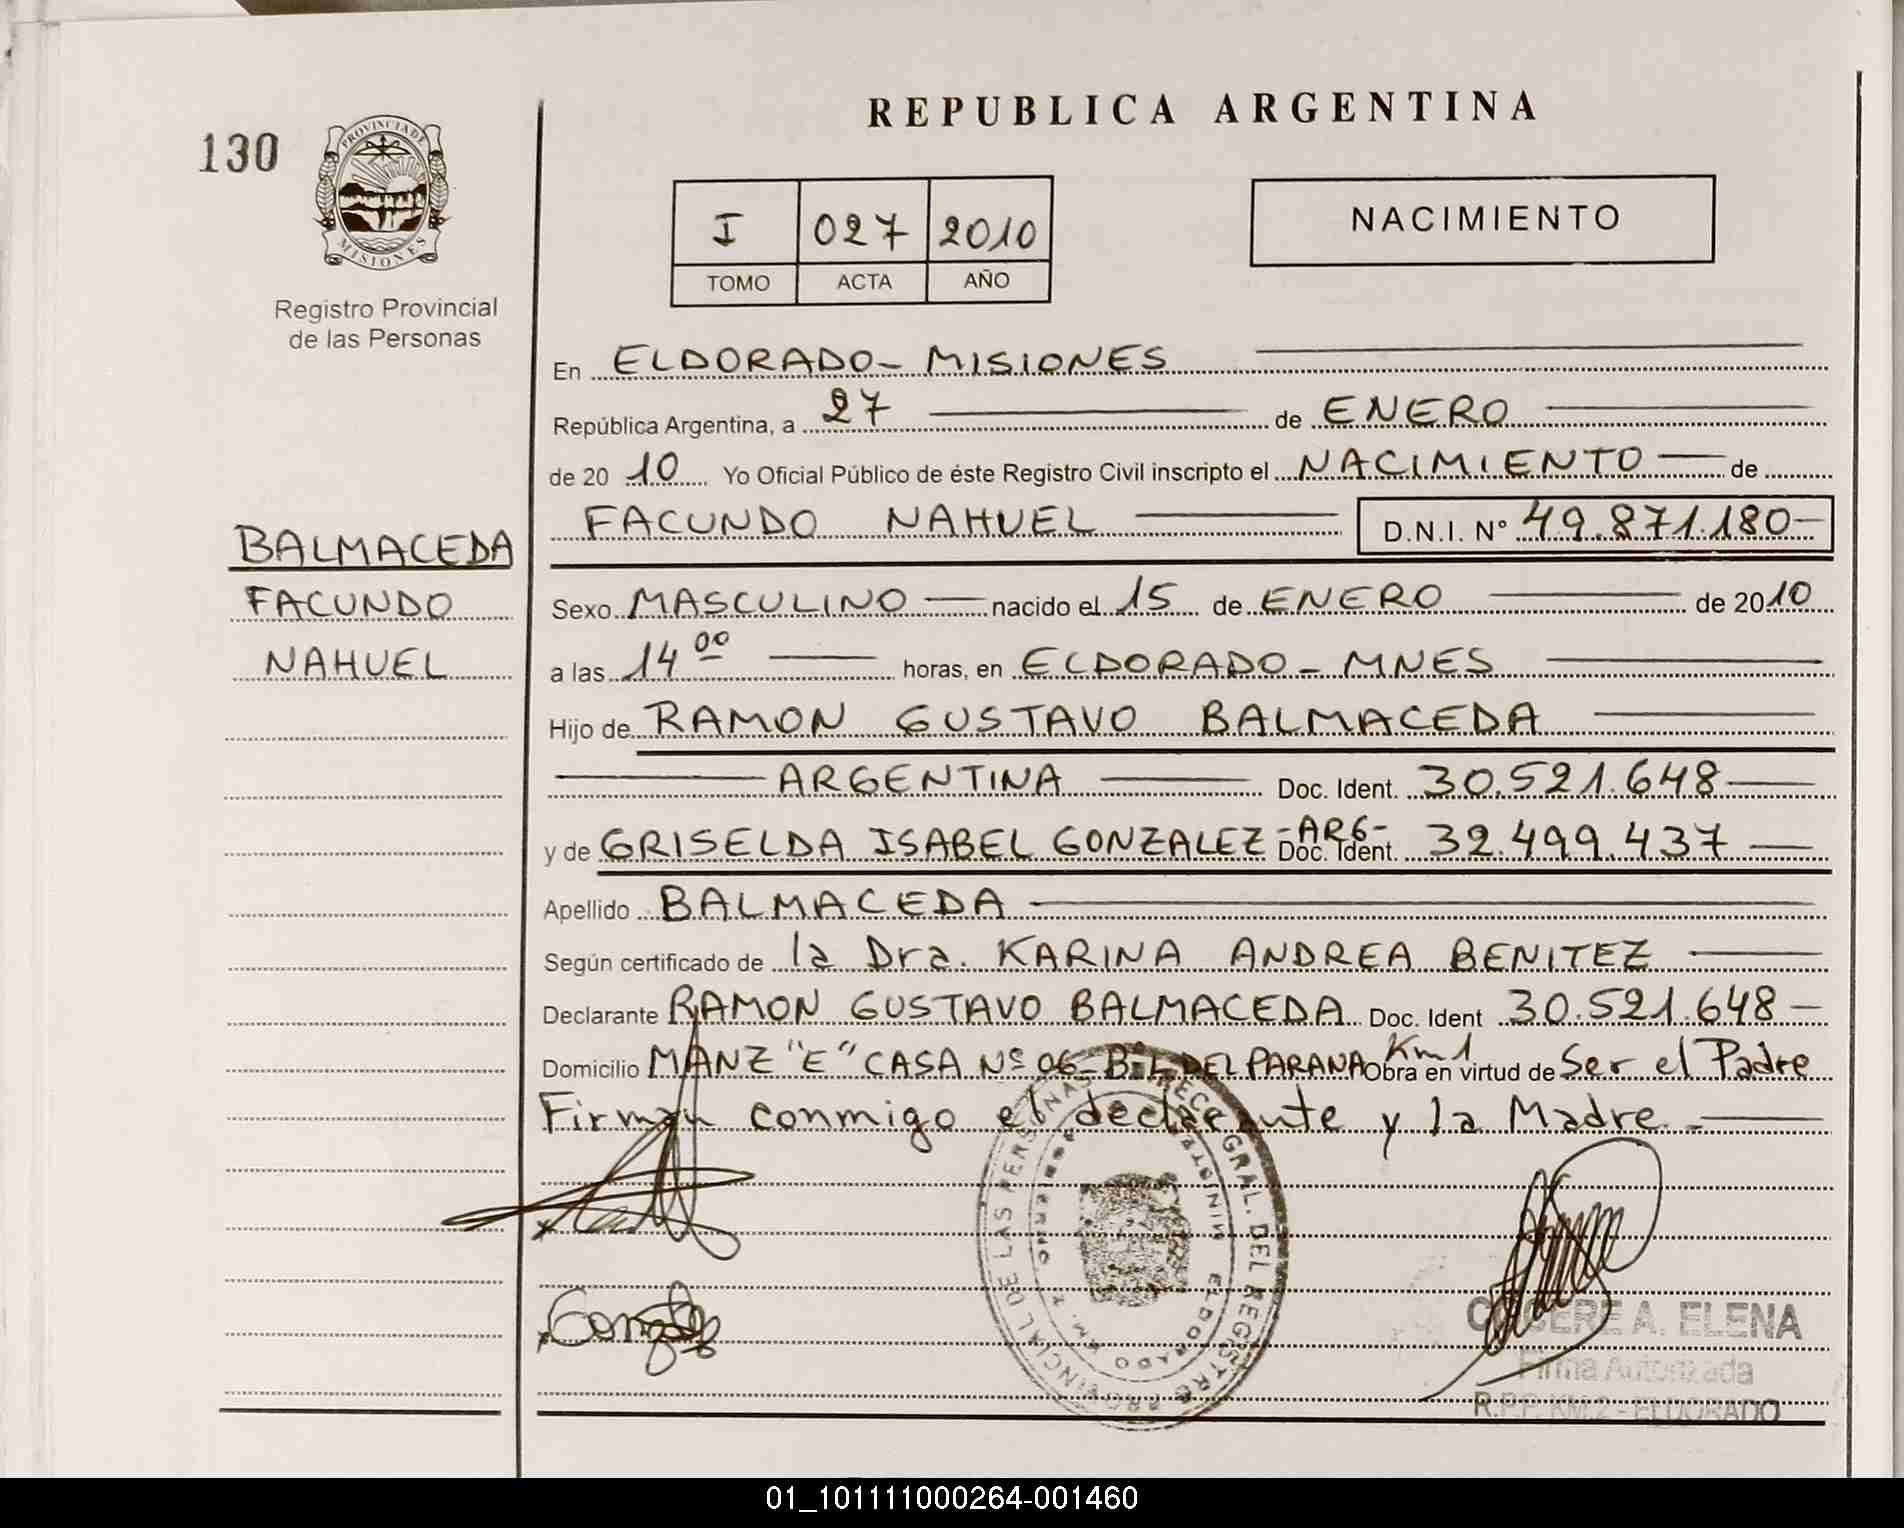 REPUBLICA ARGENTINA
130
PROVINCIA DE
MISIONES
Registro Provincial
de las Personas
I 027 2010
TOMO ACTA AÑO
NACIMIENTO
En ELDORADO - MISIONES
República Argentina, a 27 de ENERO
de 20 10 Yo Oficial Público de éste Registro Civil inscripto el NACIMIENTO de
FACUNDO NAHUEL D.N.I. Nº 49.871.180
BALMACEDA
FACUNDO
NAHUEL
Sexo MASCULINO nacido el 15 de ENERO de 2010
a las 14 00 horas, en ELDORADO - MNES
Hijo de RAMON GUSTAVO BALMACEDA
ARGENTINA Doc. Ident. 30.521.648
y de GRISELDA ISABEL GONZALEZ -ARG- Doc. Ident. 32.499.437
Apellido BALMACEDA
Según certificado de la Dra. KARINA ANDREA BENITEZ
Declarante RAMON GUSTAVO BALMACEDA Doc. Ident 30.521.648
Domicilio MANZ "E" CASA Nº 06 - DEL PARANA Km 1 Obra en virtud de Ser el Padre
Firman conmigo el declarante y la Madre.
GRAL. DEL REGISTRO PROVINCIAL DE LAS PERSONAS
ELDORADO KM. 2
A. ELENA
Firma Autorizada
R.P.P. KM.2 - ELDORADO
01_101111000264-001460